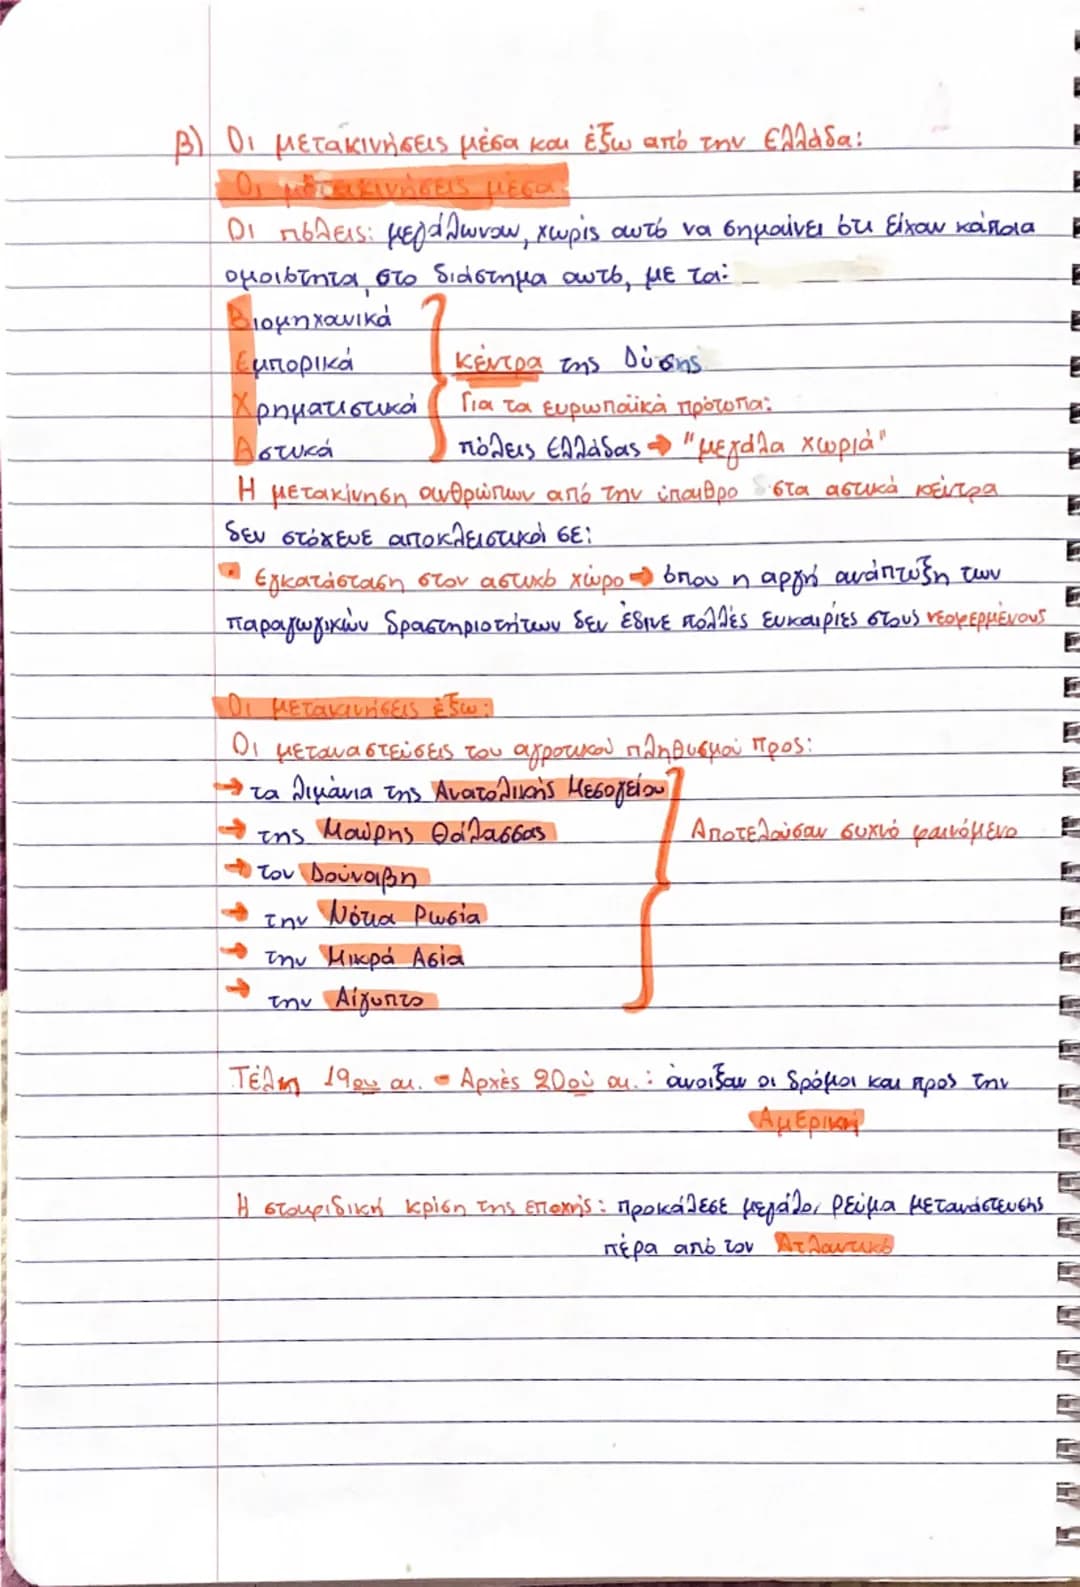 Β) Οι μετακινήσεις μέσα και έξω από την Ελλάδα:
Οι μετακινήσεις μέσα:
Οι πόλεις: μεγάλωναν, χωρίς αυτό να σημαίνει ότι είχαν κάποια
ομοιότητα, στο διάστημα αυτό, με τα:
Βιομηχανικά
Εμπορικά
κέντρα της Δύσης
Χρηματιστικά
Για τα ευρωπαϊκά πρότυπα:
Αστικά
πόλεις Ελλάδας → "μεγάλα χωριά"
Η μετακίνηση ανθρώπων από την ύπαιθρο στα αστικά κέντρα
δεν στόχευε αποκλειστικά σε:
▪ Εγκατάσταση στον αστικό χώρο → όπου η αργή ανάπτυξη των
παραγωγικών δραστηριοτήτων δεν έδινε πολλές ευκαιρίες στους νεοφερμένους
Οι μετακινήσεις έξω:
Οι μεταναστεύσεις του αγροτικού πληθυσμού προς:
→ τα λιμάνια της Ανατολικής Μεσογείου
→ της Μαύρης Θάλασσας
Αποτελούσαν συχνό φαινόμενο
→ τον Δούναβη
→ την Νότια Ρωσία
→ την Μικρά Ασία
→ την Αίγυπτο
Τέλη 19ου αι. - Αρχές 20ού αι.: άνοιξαν οι δρόμοι και προς την
Αμερική
Η σταφιδική κρίση της εποχής: προκάλεσε μεγάλο ρεύμα μετανάστευσης
πέρα από τον Ατλαντικό